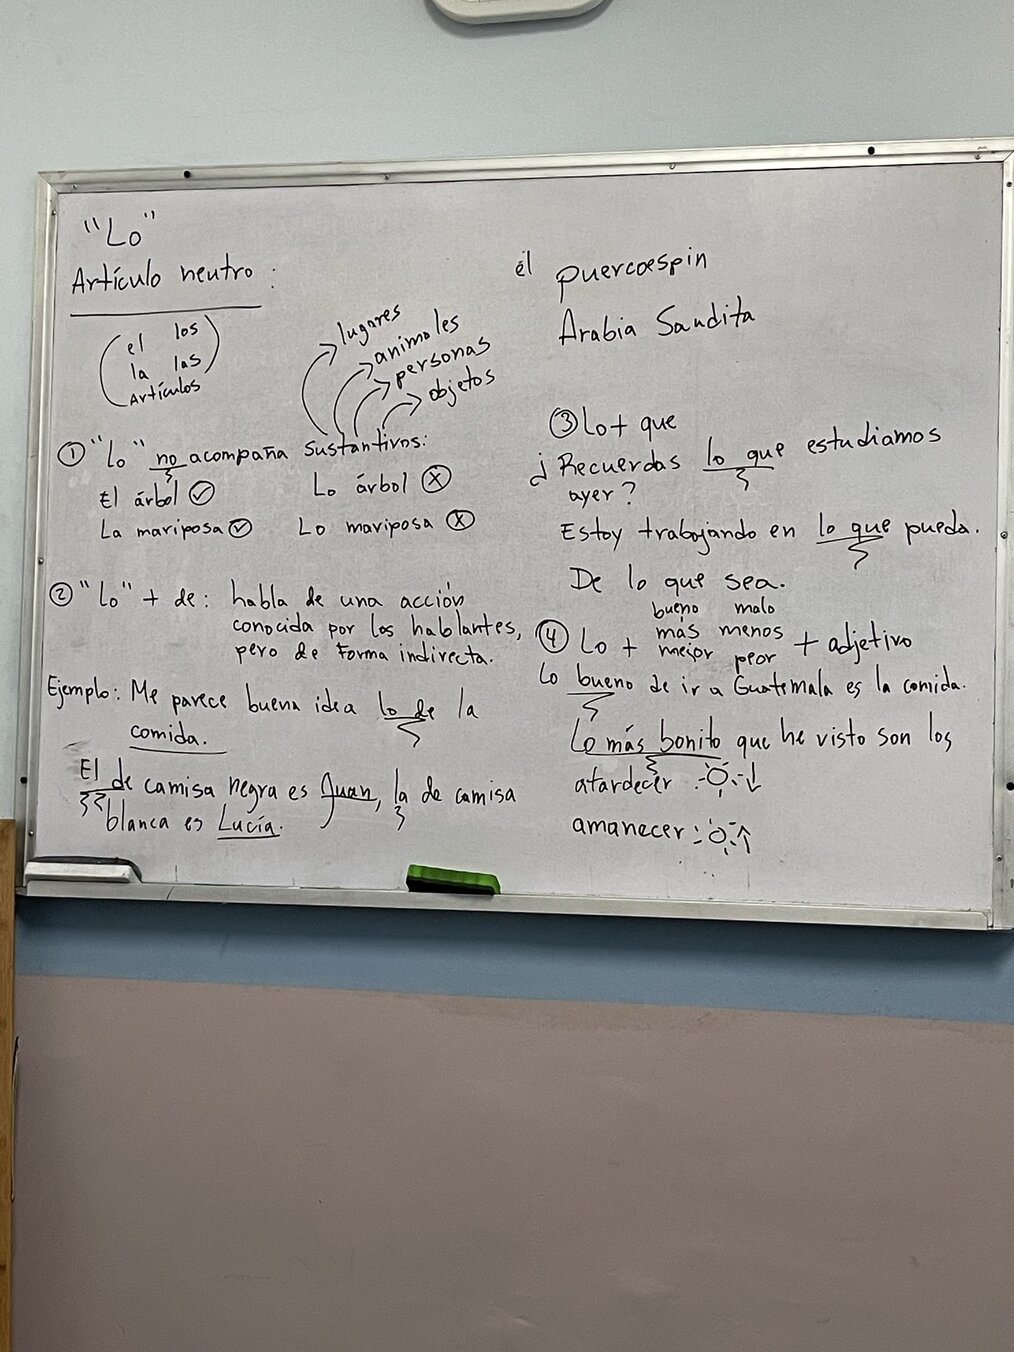 "Lo"
Artículo neutro :
el los
la las
Artículos
lugares
animales
personas
objetos
① "Lo" no acompaña sustantivos:
El árbol ✓ Lo árbol ⓧ
La mariposa ✓ Lo mariposa ⓧ
② "Lo" + de: habla de una acción
conocida por los hablantes,
pero de forma indirecta.
Ejemplo: Me parece buena idea lo de la
comida.
El de camisa negra es Juan, la de camisa
blanca es Lucía.
él puercoespin
Arabia Saudita
③ Lo + que
¿Recuerdas lo que estudiamos
ayer?
Estoy trabajando en lo que pueda.
De lo que sea.
bueno malo
④ Lo + más menos + adjetivo
mejor peor
Lo bueno de ir a Guatemala es la comida.
Lo más bonito que he visto son los
atardecer
amanecer